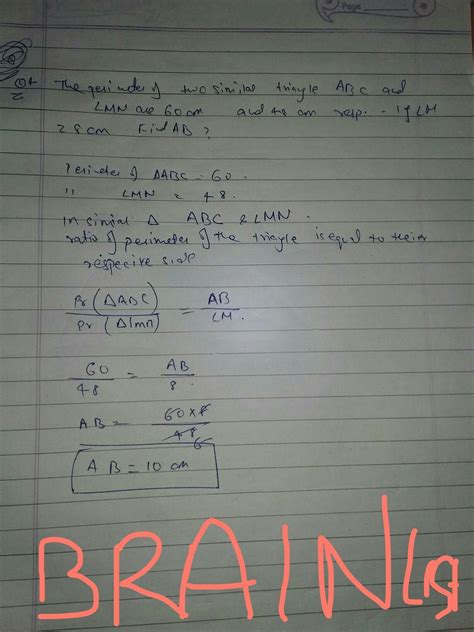 Page
The perimeter of two similar triangle ABC and
LMN are 60 cm and 48 cm resp. . If LM
= 8 cm Find AB ?
Perimeter of ΔABC = 60.
" LMN = 48.
In similar Δ ABC & LMN.
ratio of perimeter of the triangle is equal to their
respecive side
Pr (ΔABC) = AB
Pr (Δlmn) LM.
60 = AB
48 8.
AB = 60 × 8
48 6
AB = 10 cm
BRAINLIS